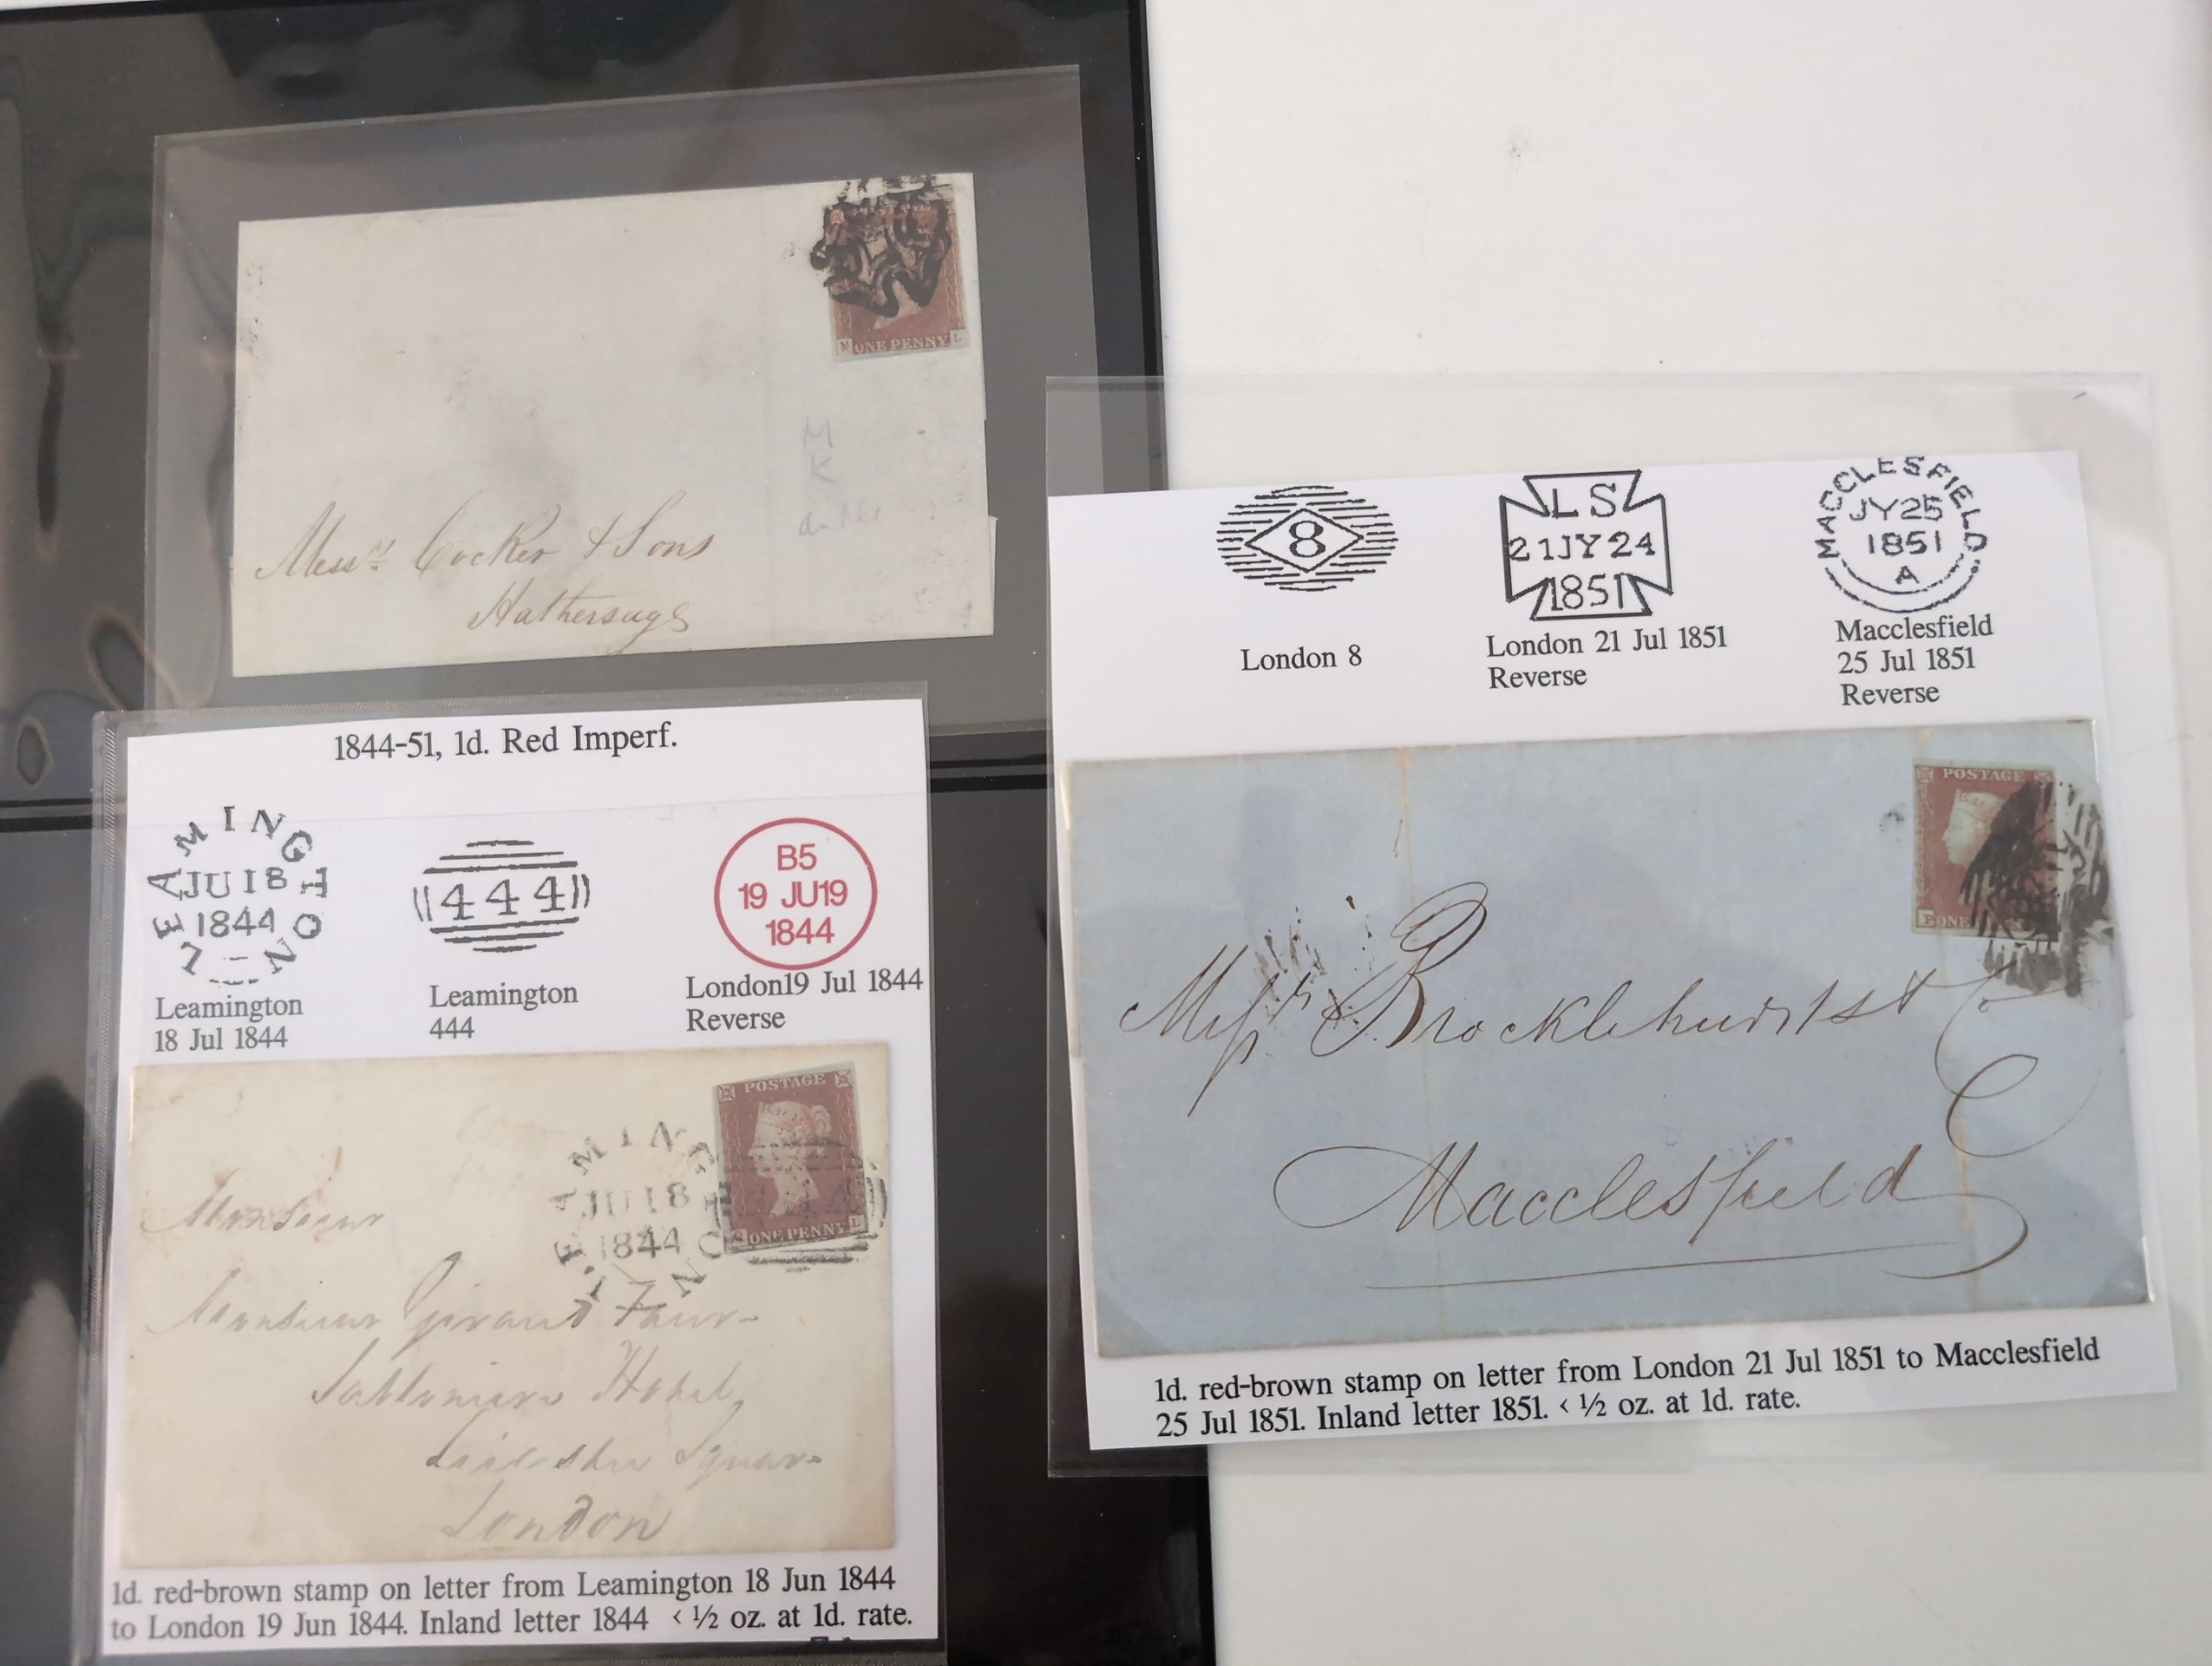 ONE PENNY L
M
K
Messrs Cocker & Sons
Hathersage
1844-51, 1d. Red Imperf.
LEAMINGTON
JU 18
1844
Leamington
18 Jul 1844
444
Leamington
444
B5
19 JU19
1844
London19 Jul 1844
Reverse
POSTAGE
ONE PENNY L
LEAMINGTON
JU 18
1844
Monsieur
Monsieur
Hotel
London
1d. red-brown stamp on letter from Leamington 18 Jun 1844
to London 19 Jun 1844. Inland letter 1844 < ½ oz. at 1d. rate.
8
London 8
LS
21JY24
1851
London 21 Jul 1851
Reverse
MACCLESFIELD
JY25
1851
A
Macclesfield
25 Jul 1851
Reverse
POSTAGE
ONE
Messrs Brocklehurst & Co
Macclesfield
1d. red-brown stamp on letter from London 21 Jul 1851 to Macclesfield
25 Jul 1851. Inland letter 1851. < ½ oz. at 1d. rate.